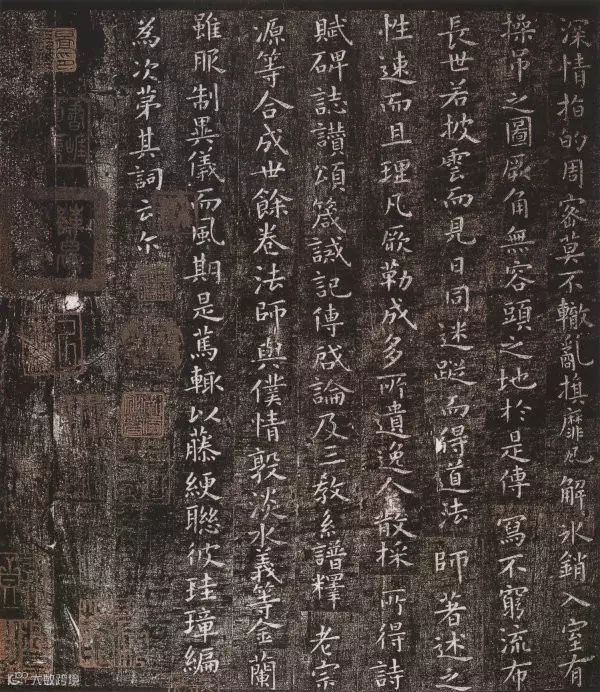 深情指的周密莫不轍亂旗靡瓦解冰銷入室有
操吊之圖厥角無容頭之地於是傳寫不窮流布
長世若披雲而見日同迷蹤而得道法師著述之
性速而且理凡厥勒成多所遺逸今散採所得詩
賦碑誌讚頌箴誡記傳啟論及三教系譜釋老宗
源等合成世餘卷法師與僕情敦淡水義等金蘭
雖服制異儀而風期是篤輒以藤綆聯彼珪璋編
為次第其詞云尓
大数跨境